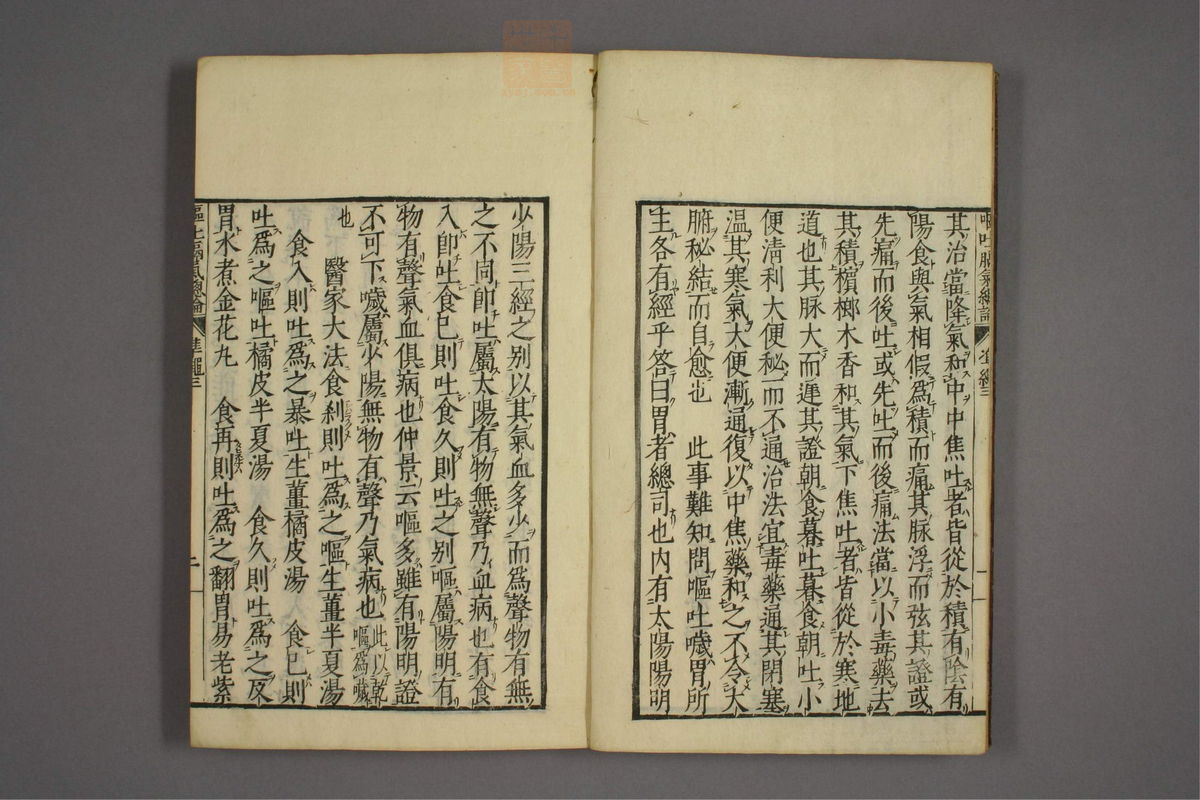 其治當降氣和中中焦吐者皆從於積有陰有
陽食與氣相假爲積而痛其脉浮而弦其證或
先痛而後吐或先吐而後痛法當以小毒藥去
其積檳榔木香和其氣下焦吐者皆從於寒地
道也其脉大而遲其證朝食暮吐暮食朝吐小
便清利大便秘而不通治法宜毒藥通其閉塞
温其寒氣大便漸通復以中焦藥和之不令大
腑秘結而自愈也　此事難知問嘔吐噦胃所
主各有經乎答曰胃者總司也内有太陽陽明
少陽三經之别以其氣血多少而爲聲物有無
之不同卽吐屬太陽有物無聲乃血病也有食
入卽吐食已則吐食久則吐之别嘔屬陽明有
物有聲氣血俱病也仲景云嘔多雖有陽明證
不可下噦屬少陽無物有聲乃氣病也此以乾嘔爲噦
也　醫家大法食刹則吐爲之嘔生薑半夏湯
食入則吐爲之暴吐生薑橘皮湯　食已則
吐爲之嘔吐橘皮半夏湯　食久則吐爲之反
胃水煮金花丸　食再則吐爲之翻胃易老紫